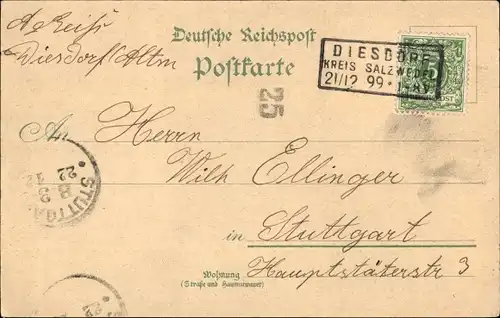 A Reiss
Diesdorf Altm
Deutsche Reichspost
Postkarte
DIESDORF
KREIS SALZWEDEL
21/12 99
25
An Herrn
Wilh Ellinger
in Stuttgart
Wohnung Hauptstäterstr 3
(Straße und Hausnummer)
STUTTG